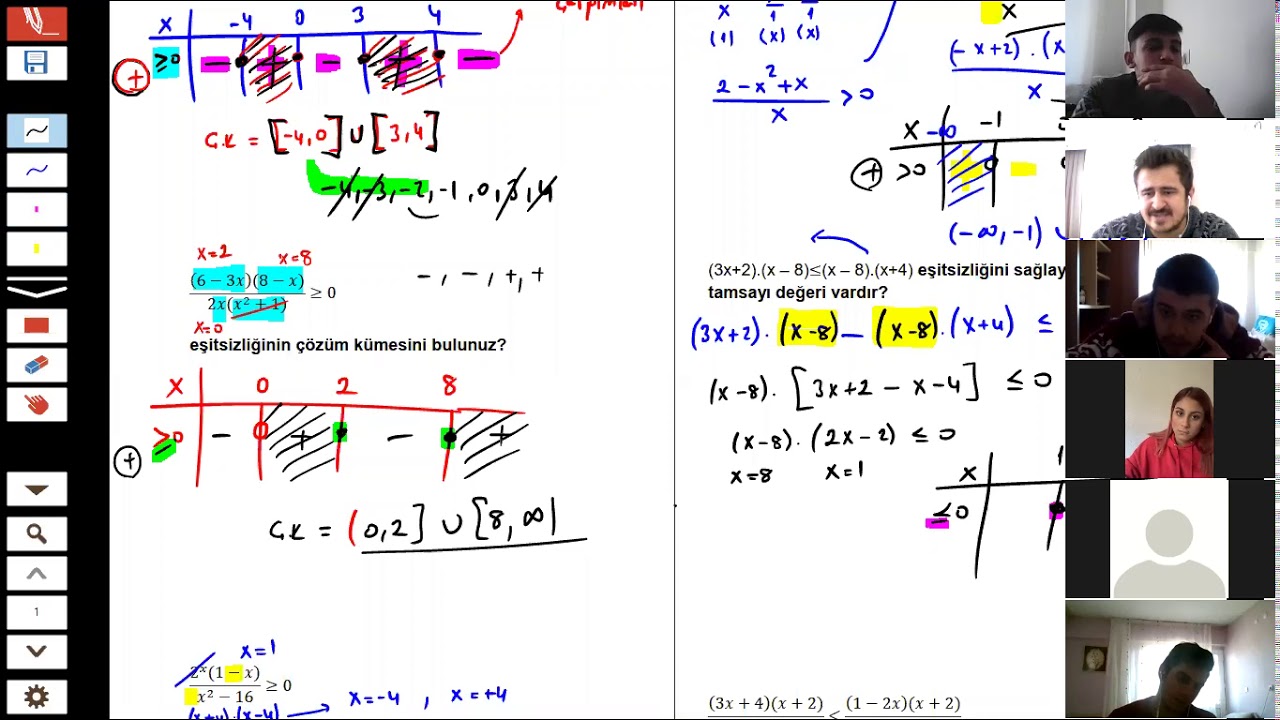 x -4 0 3 4
≥0 - + - + -
+
Ç.K = [-4,0] ∪ [3,4]
-4,-3,-2,-1,0,3,4
x=2 x=8
(6 − 3x)(8 − x)
2x(x² + 1) ≥ 0
-, -, +, +
x=0
eşitsizliğinin çözüm kümesini bulunuz?
x 0 2 8
≥0 - + - +
+
Ç.K = (0,2] ∪ [8,∞)
x=1
2ˣ(1 − x)
x² − 16 ≥ 0
(x+4).(x-4) → x=-4 , x=+4
x 1 1
(1) (x) (x)
2-x²+x
x >0
x
(-x+2).(x
x
x -∞ -1
+ >0
(-∞,-1) ∪
(3x+2).(x – 8)≤(x – 8).(x+4) eşitsizliğini sağlay
tamsayı değeri vardır?
(3x+2).(x-8)-(x-8).(x+4) ≤
(x-8).[3x+2-x-4] ≤0
(x-8).(2x-2) ≤0
x=8 x=1
x 1
≤0
(3x + 4)(x + 2) < (1 − 2x)(x + 2)
1